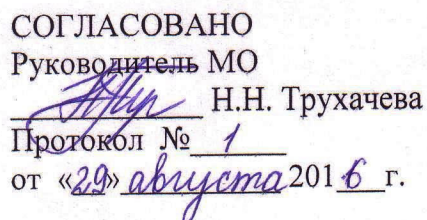 СОГЛАСОВАНО
Руководитель МО
Н.Н. Трухачева
Протокол № 1
от «29» августа 2016 г.